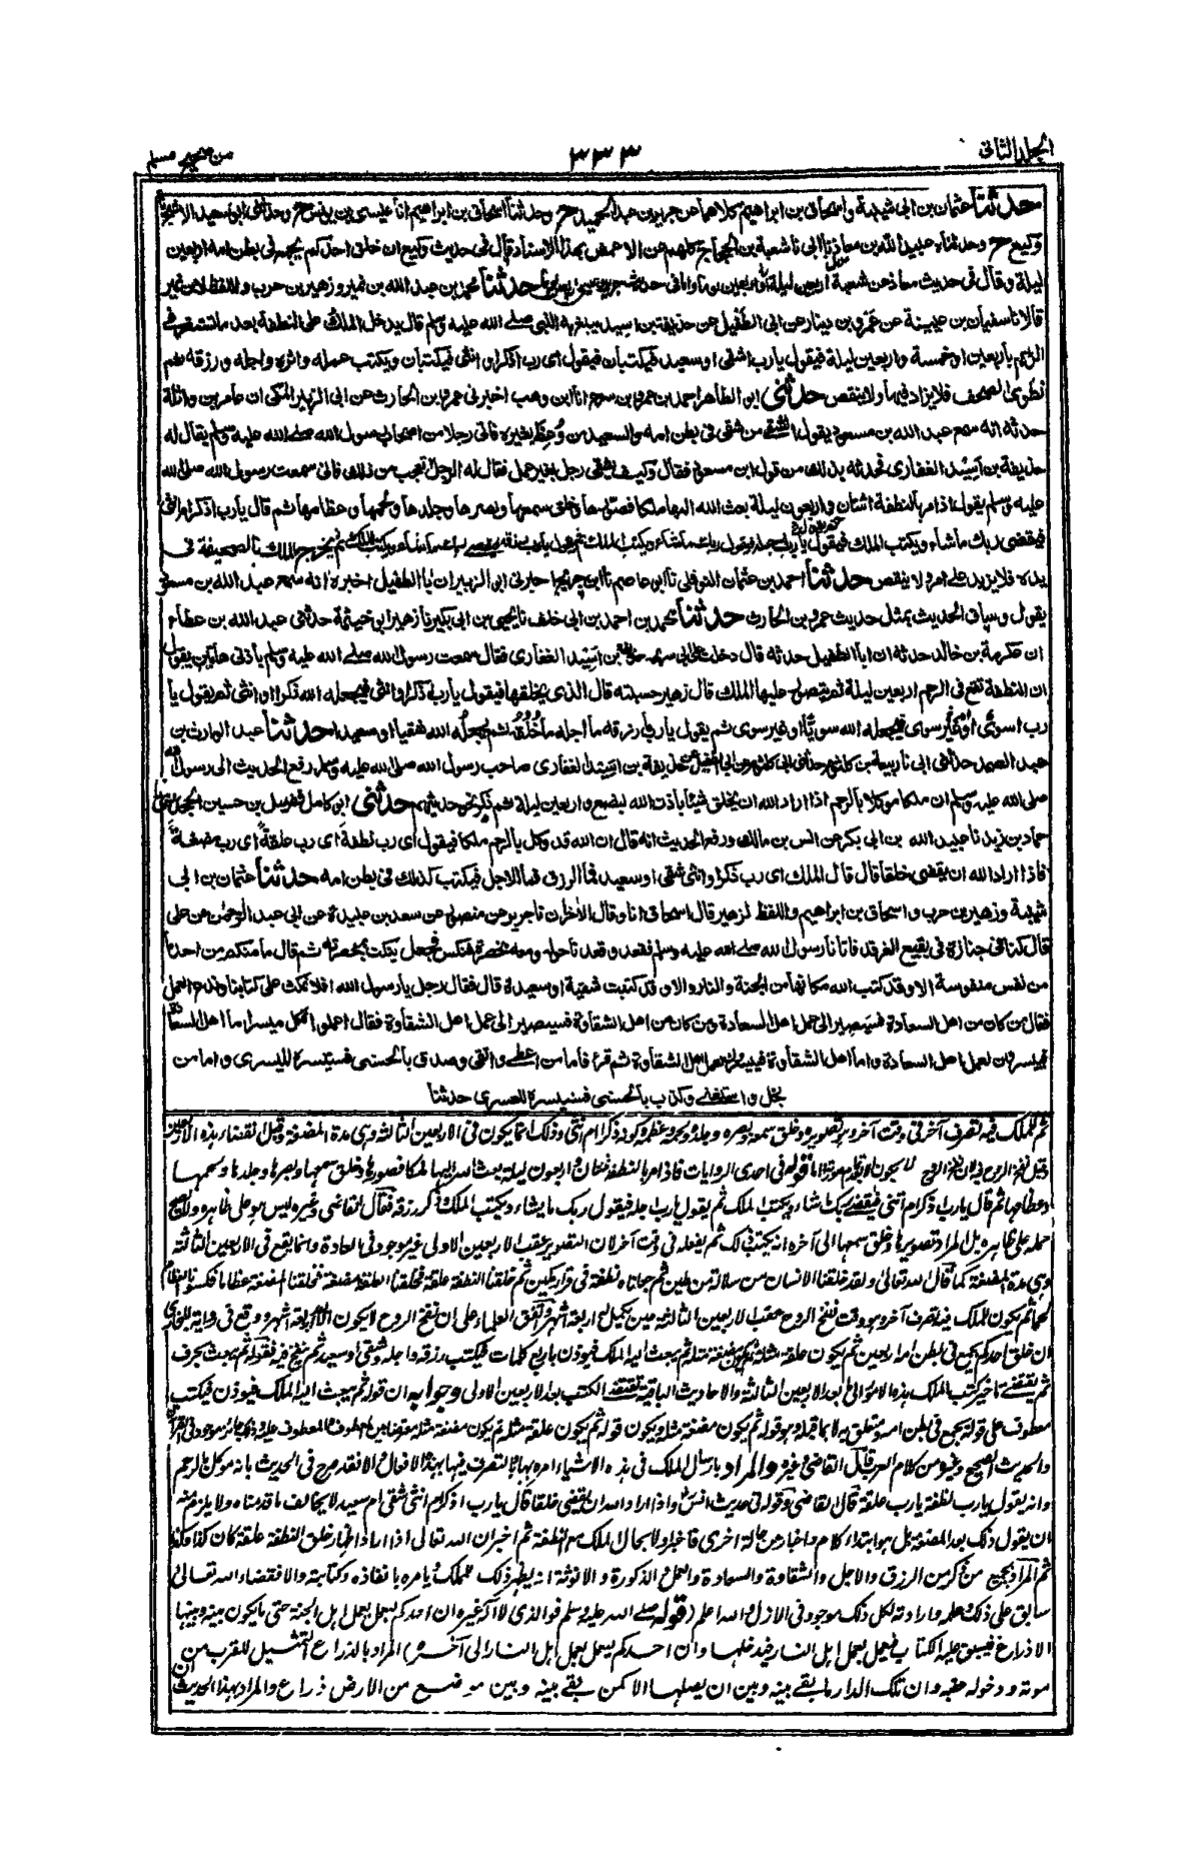 الجلد الثانى
٣٣٣
من صحيح مسلم
حدثنا عثمان بن ابى شيبة واسحاق بن ابراهيم كلاهما عن جرير بن عبد الحميد ح وحدثنا اسحاق بن ابراهيم انا عيسى بن يونس ح وحدثنى ابو سعيد الاشج نا
وكيع ح وحدثناه عبيد الله بن معاذ نا ابى نا شعبة بن الحجاج كلهم عن الاعمش بهذا الاسناد قال فى حديث وكيع ان خلق احدكم يجمع فى بطن امه اربعين
ليلة وقال فى حديث معاذ عن شعبة اربعين ليلة او اربعين يوما واما فى حديث جرير وعيسى اربعين يوما حدثنا محمد بن عبد الله بن نمير وزهير بن حرب واللفظ لابن نمير
قالا نا سفيان بن عيينة عن عمرو بن دينار عن ابى الطفيل عن حذيفة بن اسيد يبلغ به النبى صلى الله عليه وسلم قال يدخل الملك على النطفة بعد ما تستقر فى
الرحم باربعين او خمسة واربعين ليلة فيقول يارب اشقى او سعيد فيكتبان فيقول اى رب اذكر او انثى فيكتبان ويكتب عمله واثره واجله ورزقه ثم
تطوى الصحف فلا يزاد فيها ولا ينقص حدثنى ابو الطاهر احمد بن عمرو بن سرح انا ابن وهب اخبرنى عمرو بن الحارث عن ابى الزبير المكى ان عامر بن واثلة
حدثه انه سمع عبد الله بن مسعود يقول الشقى من شقى فى بطن امه والسعيد من وعظ بغيره فاتى رجلا من اصحاب رسول الله صلى الله عليه وسلم يقال له
حذيفة بن اسيد الغفارى فحدثه بذلك من قول ابن مسعود فقال وكيف يشقى رجل بغير عمل فقال له الرجل اتعجب من ذلك فانى سمعت رسول الله صلى الله
عليه وسلم يقول اذا مر بالنطفة اثنتان واربعون ليلة بعث الله اليها ملكا فصورها وخلق سمعها وبصرها وجلدها ولحمها وعظامها ثم قال يارب اذكر ام انثى
فيقضى ربك ماشاء ويكتب الملك ثم يقول يارب اجله فيقول ربك ماشاء ويكتب الملك ثم يقول يارب رزقه فيقضى ربك ماشاء ويكتب الملك ثم يخرج الملك بالصحيفة فى
يده فلا يزيد على امر ولا ينقص حدثنا احمد بن عثمان النوفلى نا ابو عاصم نا ابن جريج اخبرنى ابو الزبير ان ابا الطفيل اخبره انه سمع عبد الله بن مسعود
يقول وساق الحديث بمثل حديث عمرو بن الحارث حدثنا محمد بن احمد بن ابى خلف نا يحيى بن ابى بكير نا زهير ابو خيثمة حدثنى عبد الله بن عطاء
ان عكرمة بن خالد حدثه ان ابا الطفيل حدثه قال دخلت على ابى سريحة حذيفة بن اسيد الغفارى فقال سمعت رسول الله صلى الله عليه وسلم باذنى هاتين يقول
ان النطفة تقع فى الرحم اربعين ليلة ثم يتصور عليها الملك قال زهير حسبته قال الذى يخلقها فيقول يارب اذكر او انثى فيجعله الله ذكرا او انثى ثم يقول يا
رب اسوى او غير سوى فيجعله الله سويا او غير سوى ثم يقول يارب ما رزقه ما اجله ما خلقه ثم يجعله الله شقيا او سعيدا حدثنا عبد الوارث بن
عبد الصمد حدثنى ابى نا ربيعة بن كلثوم حدثنى ابى كلثوم عن ابى الطفيل عن حذيفة بن اسيد الغفارى صاحب رسول الله صلى الله عليه وسلم رفع الحديث الى رسول الله
صلى الله عليه وسلم ان ملكا موكلا بالرحم اذا اراد الله ان يخلق شيئا باذن الله لبضع واربعين ليلة ثم ذكر نحو حديثهم حدثنى ابو كامل فضيل بن حسين الجحدرى نا
حماد بن زيد نا عبيد الله بن ابى بكر عن انس بن مالك ورفع الحديث انه قال ان الله قد وكل بالرحم ملكا فيقول اى رب نطفة اى رب علقة اى رب مضغة
فاذا اراد الله ان يقضى خلقا قال قال الملك اى رب ذكر او انثى شقى او سعيد فما الرزق فما الاجل فيكتب كذلك فى بطن امه حدثنا عثمان بن ابى
شيبة وزهير بن حرب واسحاق بن ابراهيم واللفظ لزهير قال اسحاق انا وقال الاخران نا جرير عن منصور عن سعد بن عبيدة عن ابى عبد الرحمن عن على
قال كنا فى جنازة فى بقيع الغرقد فاتانا رسول الله صلى الله عليه وسلم فقعد وقعدنا حوله ومعه مخصرة فنكس فجعل ينكت بمخصرته ثم قال ما منكم من احد ما
من نفس منفوسة الا وقد كتب الله مكانها من الجنة والنار والا وقد كتبت شقية او سعيدة قال فقال رجل يارسول الله افلا نمكث على كتابنا وندع العمل
فقال من كان من اهل السعادة فسيصير الى عمل اهل السعادة ومن كان من اهل الشقاوة فسيصير الى عمل اهل الشقاوة فقال اعملوا فكل ميسر اما اهل السعادة
فييسرون لعمل اهل السعادة واما اهل الشقاوة فييسرون لعمل اهل الشقاوة ثم قرء فاما من اعطى واتقى وصدق بالحسنى فسنيسره لليسرى واما من
بخل واستغنى وكذب بالحسنى فسنيسره للعسرى حدثنا
ثم للملك فيه تصرف آخر فى وقت آخر وهو تصويره وخلق سمعه وبصره وجلده ولحمه وعظمه وكونه ذكرا ام انثى وذلك انما يكون فى الاربعين الثالثة وهى مدة المضغة وقبل انقضاء هذه الاربعين
وقبل نفخ الروح فيه لان نفخ الروح لا يكون الا بعد تمام صورته اما قوله فى احدى الروايات فاذا مر بالنطفة ثنتان واربعون ليلة بعث الله اليها ملكا فصورها وخلق سمعها وبصرها وجلدها ولحمها
وعظامها ثم قال يارب اذكر ام انثى فيقضى ربك ماشاء ويكتب الملك ثم يقول يارب اجله فيقول ربك مايشاء ويكتب الملك وذكر رزقه فقال القاضى وغيره ليس هو على ظاهره ولا يصح
حمله على ظاهره بل المراد بتصويرها وخلق سمعها الى آخره انه يكتب ذلك ثم يفعله فى وقت آخر لان التصوير عقب الاربعين الاولى غير موجود فى العادة وانما يقع فى الاربعين الثالثة
وهى مدة المضغة كما قال الله تعالى ولقد خلقنا الانسان من سلالة من طين ثم جعلناه نطفة فى قرار مكين ثم خلقنا النطفة علقة فخلقنا العلقة مضغة فخلقنا المضغة عظاما فكسونا العظام
لحما ثم يكون للملك فيه تصرف آخر وهو وقت نفخ الروح عقب الاربعين الثالثة حين يكمل له اربعة اشهر واتفق العلماء على ان نفخ الروح لا يكون الا بعد اربعة اشهر ووقع فى رواية للبخارى
ان خلق احدكم يجمع فى بطن امه اربعين ثم يكون علقة مثله ثم يكون مضغة مثله ثم يبعث اليه الملك فيوذن باربع كلمات فيكتب رزقه واجله وشقى او سعيد ثم ينفخ فيه فقوله ثم يبعث بحرف
ثم يقتضى تاخير كتب الملك هذه الامور الى ما بعد الاربعين الثالثة والاحاديث الباقية تقتضى الكتب بعد الاربعين الاولى وجوابه ان قوله ثم يبعث اليه الملك فيوذن فيكتب
معطوف على قوله يجمع فى بطن امه ومتعلق به لا بما قبله وهو قوله ثم يكون مضغة مثله ويكون قوله ثم يكون علقة مثله ثم يكون مضغة مثله معترضا بين المعطوف والمعطوف عليه وذلك جائز موجود فى القرآن
والحديث الصحيح وغيره من كلام العرب قال القاضى وغيره والمراد بارسال الملك فى هذه الاشياء امره بها بالتصرف فيها بهذه الافعال والا فقد صرح فى الحديث بانه موكل بالرحم
وانه يقول يارب نطفة يارب علقة قال القاضى وقوله فى حديث انس واذا اراد الله ان يقضى خلقا قال يارب اذكر ام انثى شقى ام سعيد لا يخالف ما قدمناه ولا يلزم منه
ان يقول ذلك بعد المضغة بل هو ابتداء كلام واخبار عن حالة اخرى فاخبر اولا بحال الملك مع النطفة ثم اخبر ان الله تعالى اذا اراد اظهار خلق النطفة علقة كان كذا وكذا
ثم المراد بجميع ما ذكر من الرزق والاجل والشقاوة والسعادة والعمل والذكورة والانوثة انه يظهر ذلك للملك ويامره بانفاذه وكتابته والا فقضاء الله تعالى
سابق على ذلك وعلمه وارادته لكل ذلك موجود فى الازل والله اعلم (قوله صلى الله عليه وسلم فوالذى لا اله غيره ان احدكم ليعمل بعمل اهل الجنة حتى ما يكون بينه وبينها
الا ذراع فيسبق عليه الكتاب فيعمل بعمل اهل النار فيدخلها وان احدكم يعمل بعمل اهل النار الى آخره) المراد بالذراع التمثيل للقرب من
موته ودخوله عقبه وان تلك الدار ما بقى بينه وبين ان يصلها الا كمن بقى بينه وبين موضع من الارض ذراع والمراد بهذا الحديث ان